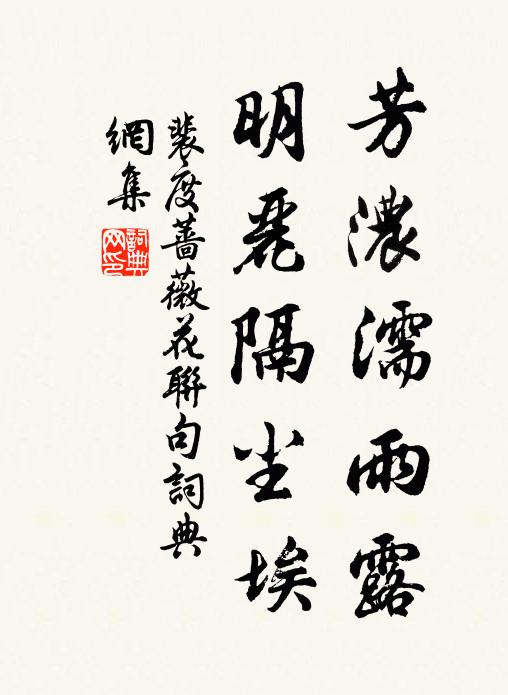 芳濃濡雨露
明麗隔尘埃
裴度薔薇花聯句詞典
網集
詞典
网印